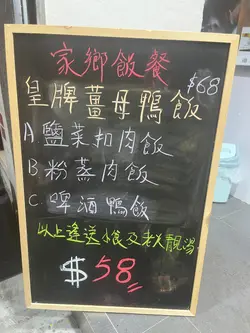 家鄉飯餐
$68
皇牌薑母鴨飯
A 鹽菜扣肉飯
B 粉蒸肉飯
C 啤酒鴨飯
以上逢送小食及老火靚湯
$58